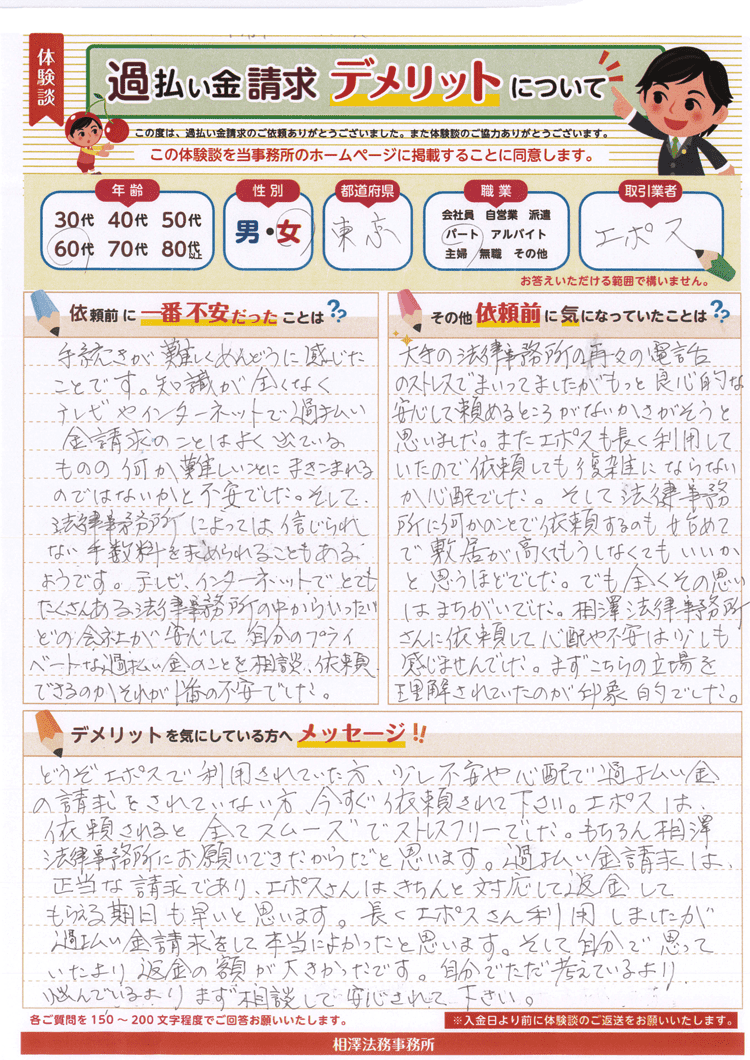 体験談
過払い金請求 デメリットについて
この度は、過払い金請求のご依頼ありがとうございました。また体験談のご協力ありがとうございます。
この体験談を当事務所のホームページに掲載することに同意します。
年齢
30代 40代 50代
60代 70代 80代以上
性別
男・女
都道府県
東京
職業
会社員 自営業 派遣
パート アルバイト
主婦 無職 その他
取引業者
エポス
お答えいただける範囲で構いません。
依頼前に一番不安だったことは??
手続きが難しくめんどうに感じた
ことです。知識が全くなく
テレビやインターネットで過払い
金請求のことはよく出ている
ものの何か難しいことにまきこまれる
のではないかと不安でした。そして、
法律事務所によっては信じられ
ない手数料を求められることもある
ようです。テレビ、インターネットでとても
たくさんある法律事務所の中からいったい
どの会社が安心して自分のプライ
ベートな過払い金のことを相談、依頼
できるのかそれが1番の不安でした。
その他依頼前に気になっていたことは??
大手の法律事務所の再々の電話
のストレスでまいってましたがもっと良心的な
安心して頼めるところがないかさがそうと
思いました。またエポスも長く利用して
いたので依頼しても複雑にならない
か心配でした。そして法律事務
所に何かのことで依頼するのも始めて
で敷居が高くてもうしなくてもいいか
と思うほどでした。でも全くその思い
はまちがいでした。相澤法律事務所
さんに依頼して心配や不安は少しも
感じませんでした。まずこちらの立場を
理解されていたのが印象的でした。
デメリットを気にしている方へメッセージ!!
どうぞエポスで利用されていた方、少し不安や心配で過払い金
の請求をされていない方、今すぐ依頼されて下さい。エポスは、
依頼されると全てスムーズでストレスフリーでした。もちろん相澤
法律事務所にお願いできたからだと思います。過払い金請求は、
正当な請求であり、エポスさんはきちんと対応して返金して
もらえる期日も早いと思います。長くエポスさん利用しましたが
過払い金請求をして本当によかったと思います。そして自分で思って
いたより返金の額が大きかったです。自分でただ考えているより
悩んでいるよりまず相談して安心されて下さい。
各ご質問を150～200文字程度でご回答お願いいたします。
※入金日より前に体験談のご返送をお願いいたします。
相澤法務事務所